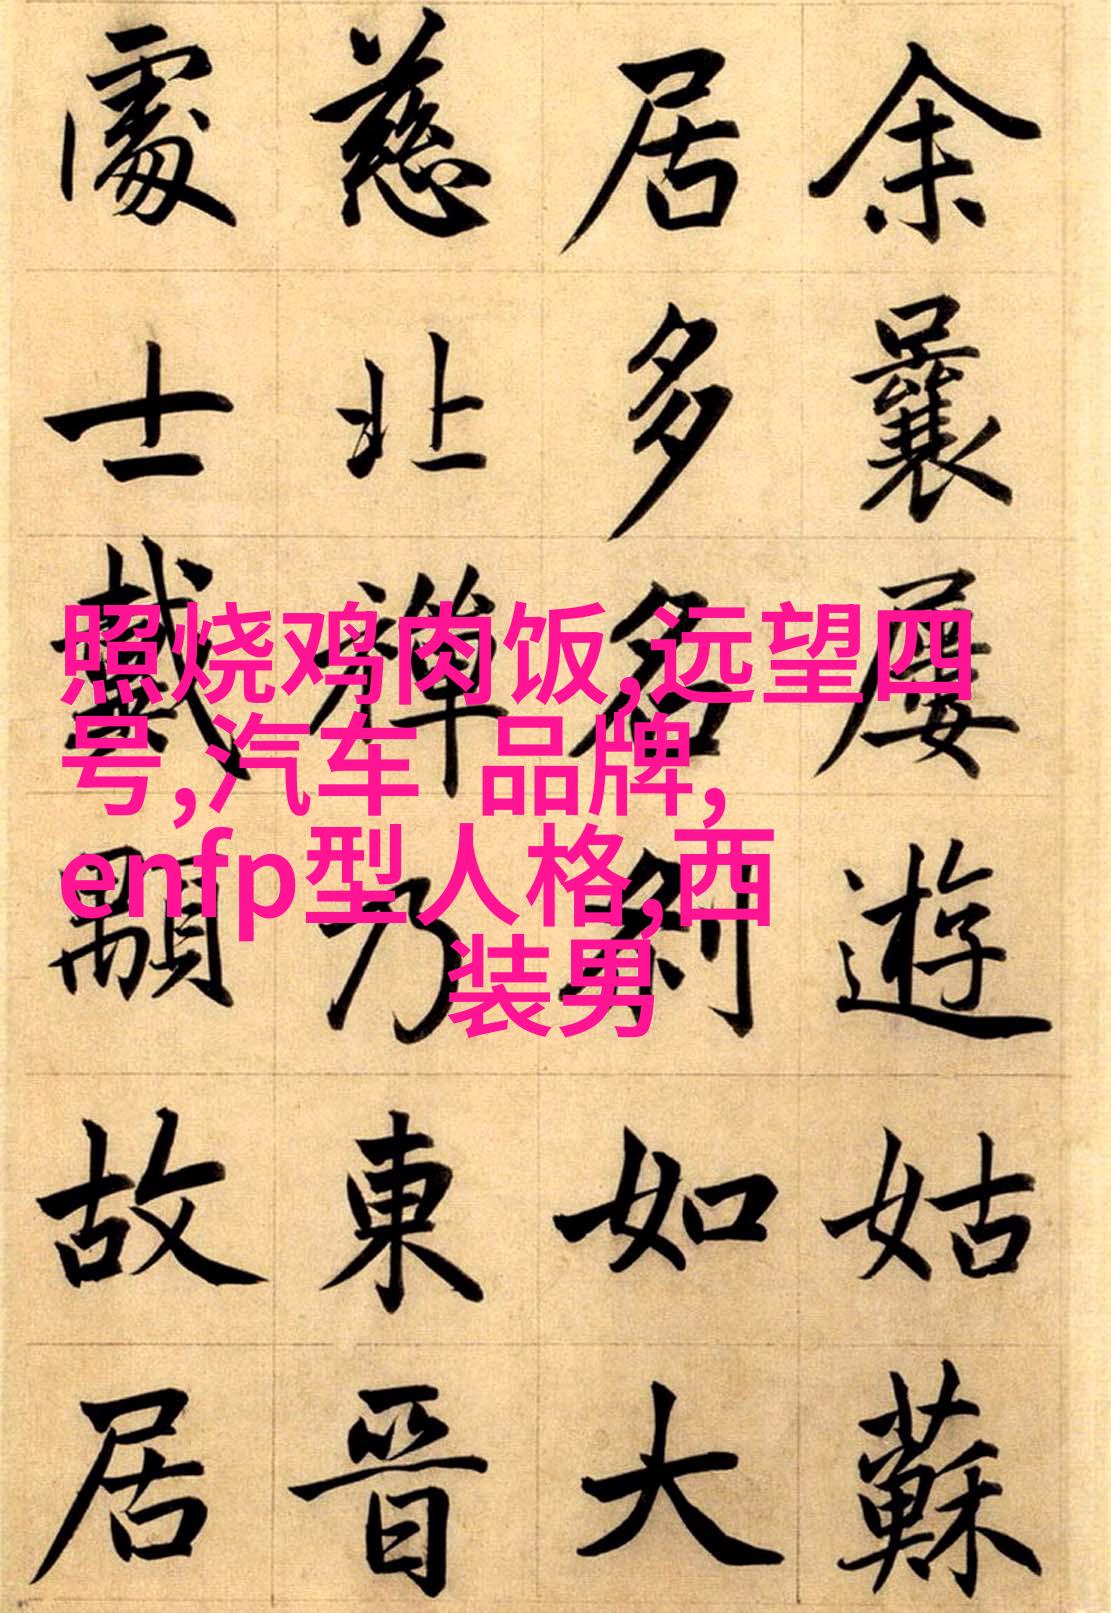 余曩屡遊姑蘇
居多名刹如大
慈北禅乃東晉
處士戴顒故居
照烧鸡肉饭,远望四
号,汽车 品牌,
enfp型人格,西
装男